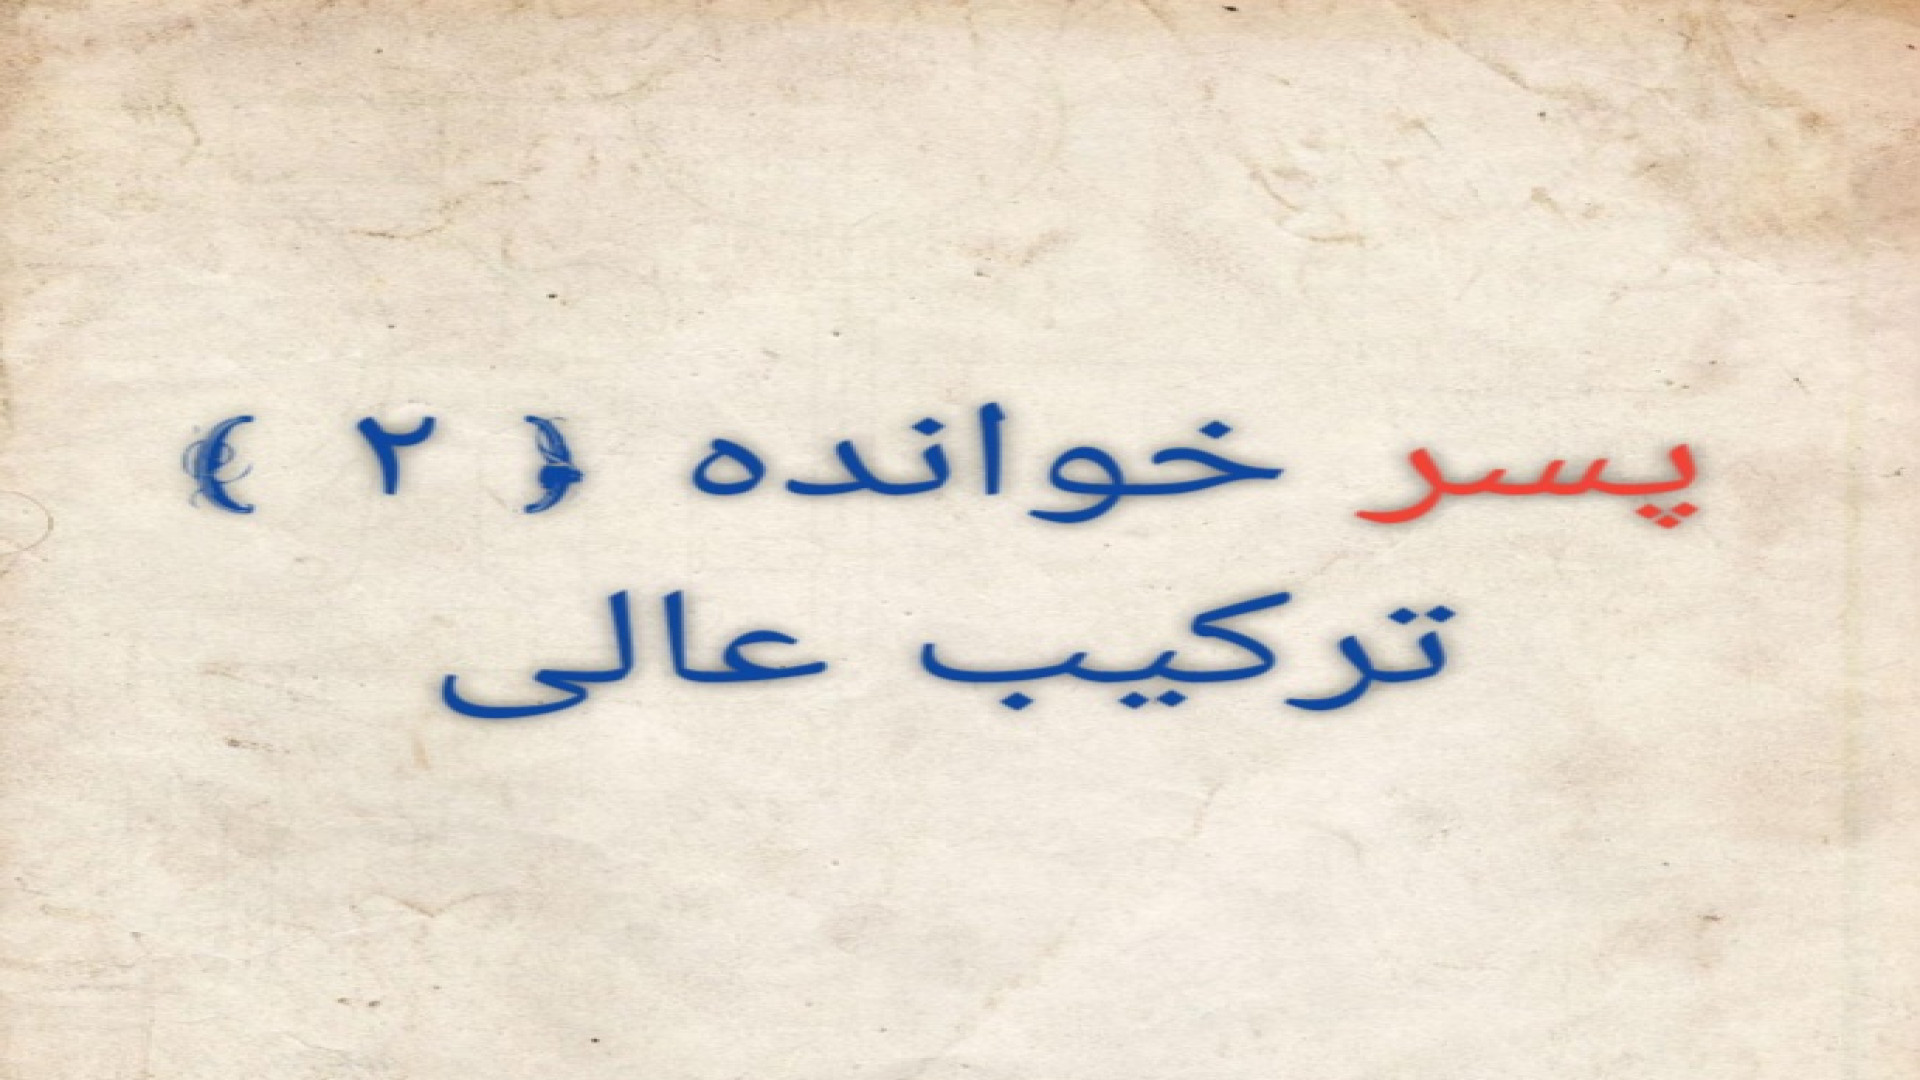 پسر خوانده ﴿ ۲ ﴾
ترکیب عالی